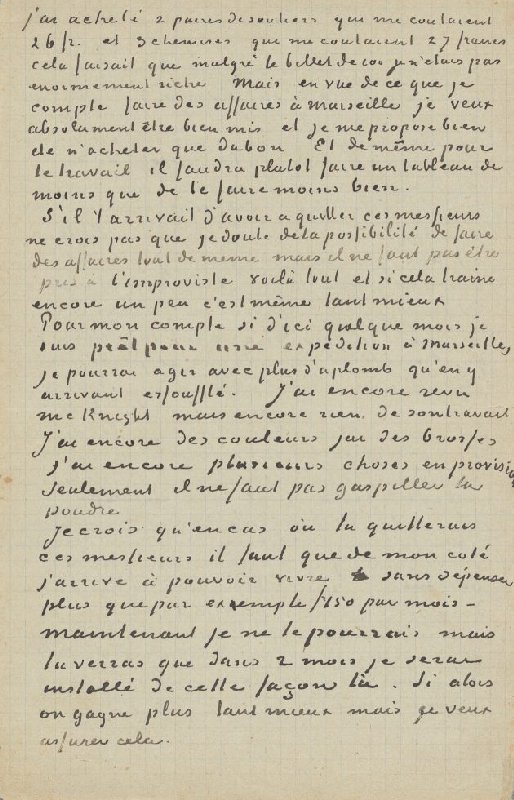 j'ai acheté 2 paires de souliers qui me coutaient
26 fr. et 3 chemises qui me coutaient 27 francs
cela faisait que malgré le billet de 100 je n'étais pas
enormement riche Mais en vue de ce que je
compte faire des affaires à Marseille je veux
absolument être bien mis et je me propose bien
de n'acheter que du bon Et de même pour
le travail il faudra plutot faire un tableau de
moins que de le faire moins bien.
S'il t'arrivait d'avoir a quitter ces messieurs
ne crois pas que je doute de la possibilité de faire
des affaires tout de meme mais il ne faut pas être
pris à l'improviste voilà tout et si cela traine
encore un peu c'est même tant mieux
Pour mon compte si d'ici quelque mois je
suis prêt pour une expedition à Marseille,
je pourrai agir avec plus d'aplomb qu'en y
arrivant essoufflé. J'ai encore revu
McKnight mais encore rien de son travail
J'ai encore des couleurs j'ai des brosses
j'ai encore plusieurs choses en provision
Seulement il ne faut pas gaspiller la
poudre
Je crois qu'en cas où tu quitterais
ces messieurs il faut que de mon coté
j'arrive à pouvoir vivre sans dépenser
plus que par exemple 150 par mois –
Maintenant je ne le pourrais mais
tu verras que dans 2 mois je serai
installé de cette façon là. Si alors
on gagne plus tant mieux mais je veux
assurer cela.